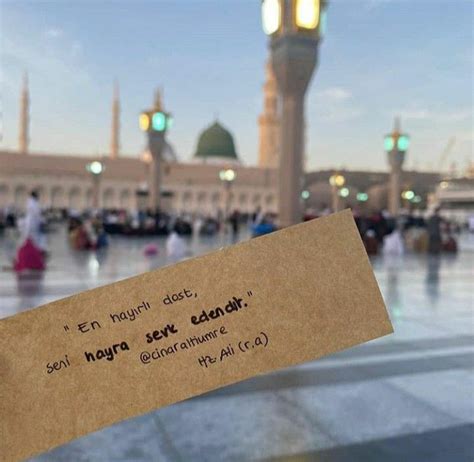 "En hayırlı dost,
seni hayra sevk edendir."
@cinaraltiumre
Hz. Ali (r.a)